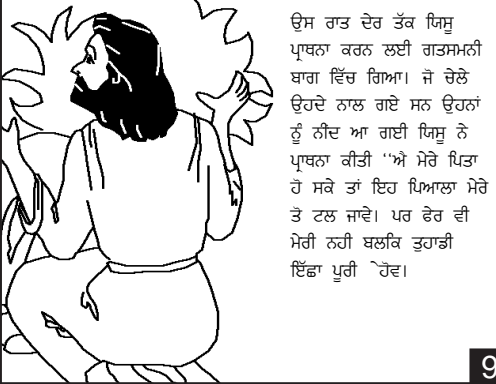 ਉਸ ਰਾਤ ਦੇਰ ਤੱਕ ਯਿਸੂ
ਪ੍ਰਾਥਨਾ ਕਰਨ ਲਈ ਗਤਸਮਨੀ
ਬਾਗ ਵਿੱਚ ਗਿਆ। ਜੋ ਚੇਲੇ
ਉਹਦੇ ਨਾਲ ਗਏ ਸਨ ਉਹਨਾਂ
ਨੂੰ ਨੀਂਦ ਆ ਗਈ ਯਿਸੂ ਨੇ
ਪ੍ਰਾਥਨਾ ਕੀਤੀ ‘‘ਐ ਮੇਰੇ ਪਿਤਾ
ਹੋ ਸਕੇ ਤਾਂ ਇਹ ਪਿਆਲਾ ਮੇਰੇ
ਤੋ ਟਲ ਜਾਵੇ। ਪਰ ਫੇਰ ਵੀ
ਮੇਰੀ ਨਹੀ ਬਲਕਿ ਤੁਹਾਡੀ
ਇੱਛਾ ਪੂਰੀ ੇਹੋਵ।
9